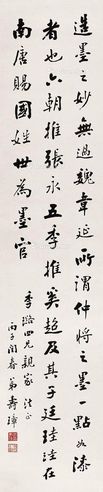 造墨之妙無過魏韋延所謂仲將之墨一點如漆
者也六朝推張永五季推奚超及其子廷珪法在
南唐賜國姓世為墨官
季路四兄親家法正
丙子閏春弟壽璋